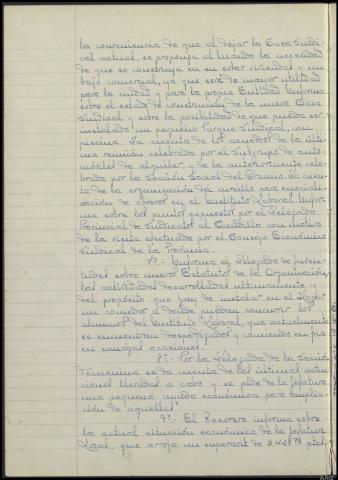 la conveniencia de que al dejar la Casa Sindi-
cal actual, se proponga al Mando la necesidad
de que se construya en su solar viviendas y un
bajo comercial, ya que será de mayor utilidad
para la ciudad y para la propia Entidad. Informa
sobre el estado de construcción de la nueva Casa
Sindical y sobre la posibilidad de que pueda ser
instalado un pequeño Parque Sindical, con
piscina. Da cuenta de los acuerdos de la últi-
ma reunión celebrada por el Subgrupo de auto-
móviles de alquiler, y de la anteriormente cele-
brada por la Sección Social del Gremio. Da cuen-
ta de la organización del cursillo para especiali-
zación de obreros en el Instituto Laboral. Infor-
ma sobre los puntos expuestos por el Delegado
Provincial de Sindicatos al Caudillo con motivo
de la visita efectuada por el Consejo Económico
Sindical de la Provincia.
7º.- Informa el Delegado de Juven-
tudes sobre nuevos Estatutos de la Organización,
las actividades desarrolladas ultimamente y
del propósito que hay de instalar en el Hogar
un comedor al donde puedan concurrir los
alumnos del Instituto Laboral, que actualmente
se encuentran despedigados y comiendo en frio
en muchas ocasiones.
8º.- Por la Delegada de la Sección
Femenina se da cuenta de las últimas actua-
ciones llevadas a cabo y se pide de la Jefatura
una pequeña ayuda económica para amplia-
ción de aquellas.
9º.- El Tesorero informa sobre
la actual situación económica de la Jefatura
Local, que arroja un superavit de ptas,